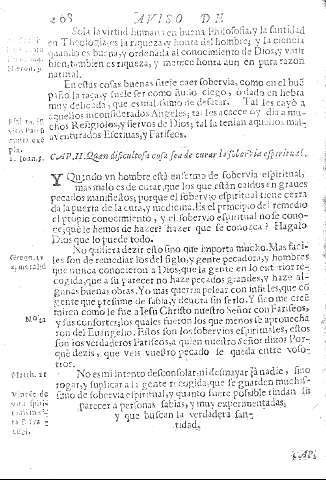 AVISO DE
Sola la virtud humana en buena Philosofia, y la santidad
en Theologia, es la riqueza y honra del hombre; y la ciencia
quando es buena, y ordenada al conocimiento de Dios, y vivir
bien, tambien es riqueza, y merece honra aun en pura razon
natural.
En estas cosas buenas suele caer sobervia, como en el buē
paño la raça, y suele ser como ñudo ciego, o dado en hebra
muy delicada, que es malissimo de desatar. Tal les cayò a
aquellos inconsiderados Angeles; tal les acaece oy dia a mu-
chos Religiosos, y siervos de Dios; tal la tenian aquellos mal-
aventurados Escrivas, y Fariseos.
CAP. II. Quan dificultosa cosa sea de curar la sobervia espiritual.
QUando vn hombre està enfermo de sobervia espiritual,
mas malo es de curar, que los que están caidos en graves
pecados manifiestos; porque el sobervio espiritual tiene cerra
da la puerta de la cura, y medicina. Es el principio del remedio
el propio conocimiento, y el sobervio espiritual no se cono-
ce; què le hemos de hazer? hazer que se conozca? Hagalo
Dios que lo puede todo.
No quisiera dezir esto sino que importa mucho. Mas faci-
les son de remediar los del siglo, y gente pecadora, y hombres
que nunca conocieron a Dios, que la gente en lo exterior re-
cogida, que a su parecer no haze pecados grandes, y haze al-
gunas buenas obras. Yo mas querria pelear con infieles, que cō
gente que presume de sabia, y devota sin serlo. Y si no me creē
miren como le fue a Iesu Christo nuestro Señor con Fariseos,
y sus consortes, los quales fueron los que menos se aprovecha
ron del Euangelio. Estos son los sobervios espirituales, estos
son los verdaderos Fariseos, a quien nuestro Señor dixo: Por-
què dezis, que veis vuestro pecado se queda entre voso-
tros.
No es mi intento desconsolar, ni desmayar à nadie, sino
rogar, y suplicar a la gente recogida, que se guarden muchis-
simo de sobervia espiritual, y quanto fuere possible rindan su
parecer a personas sabias, y muy experimentadas,
y que buscan la verdadera san-
tidad,
CAP.